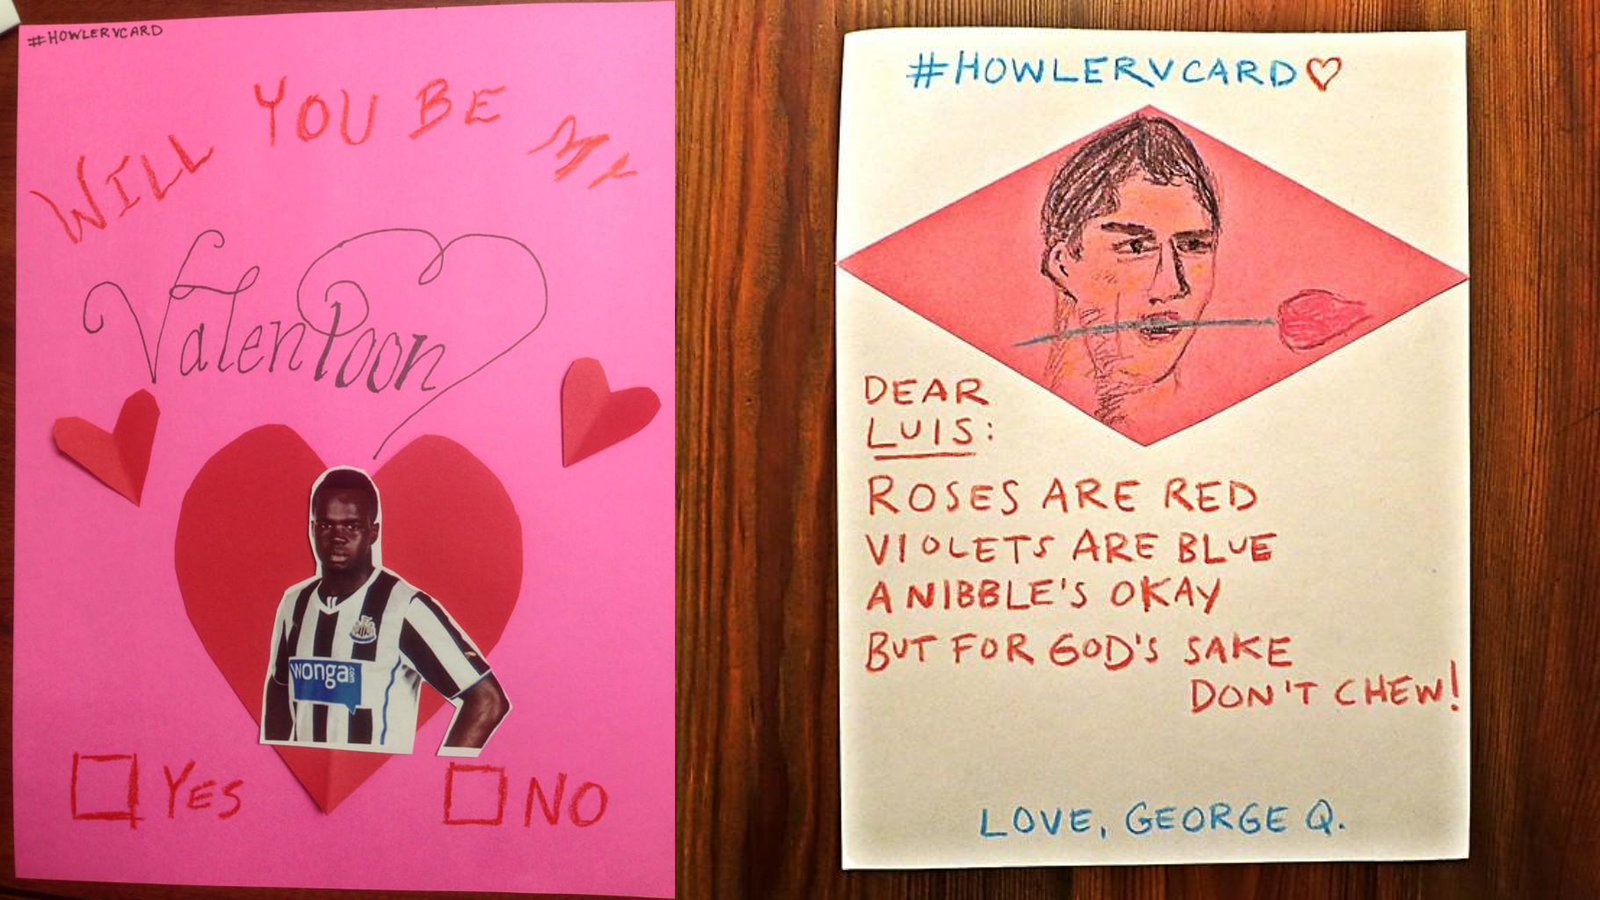 #HOWLERVCARD
WILL YOU BE My
ValenPoon
wonga.com
YES
NO
#HOWLERVCARD♡
DEAR
LUIS:
ROSES ARE RED
VIOLETS ARE BLUE
A NIBBLE'S OKAY
BUT FOR GOD'S SAKE
DON'T CHEW!
LOVE, GEORGE Q.